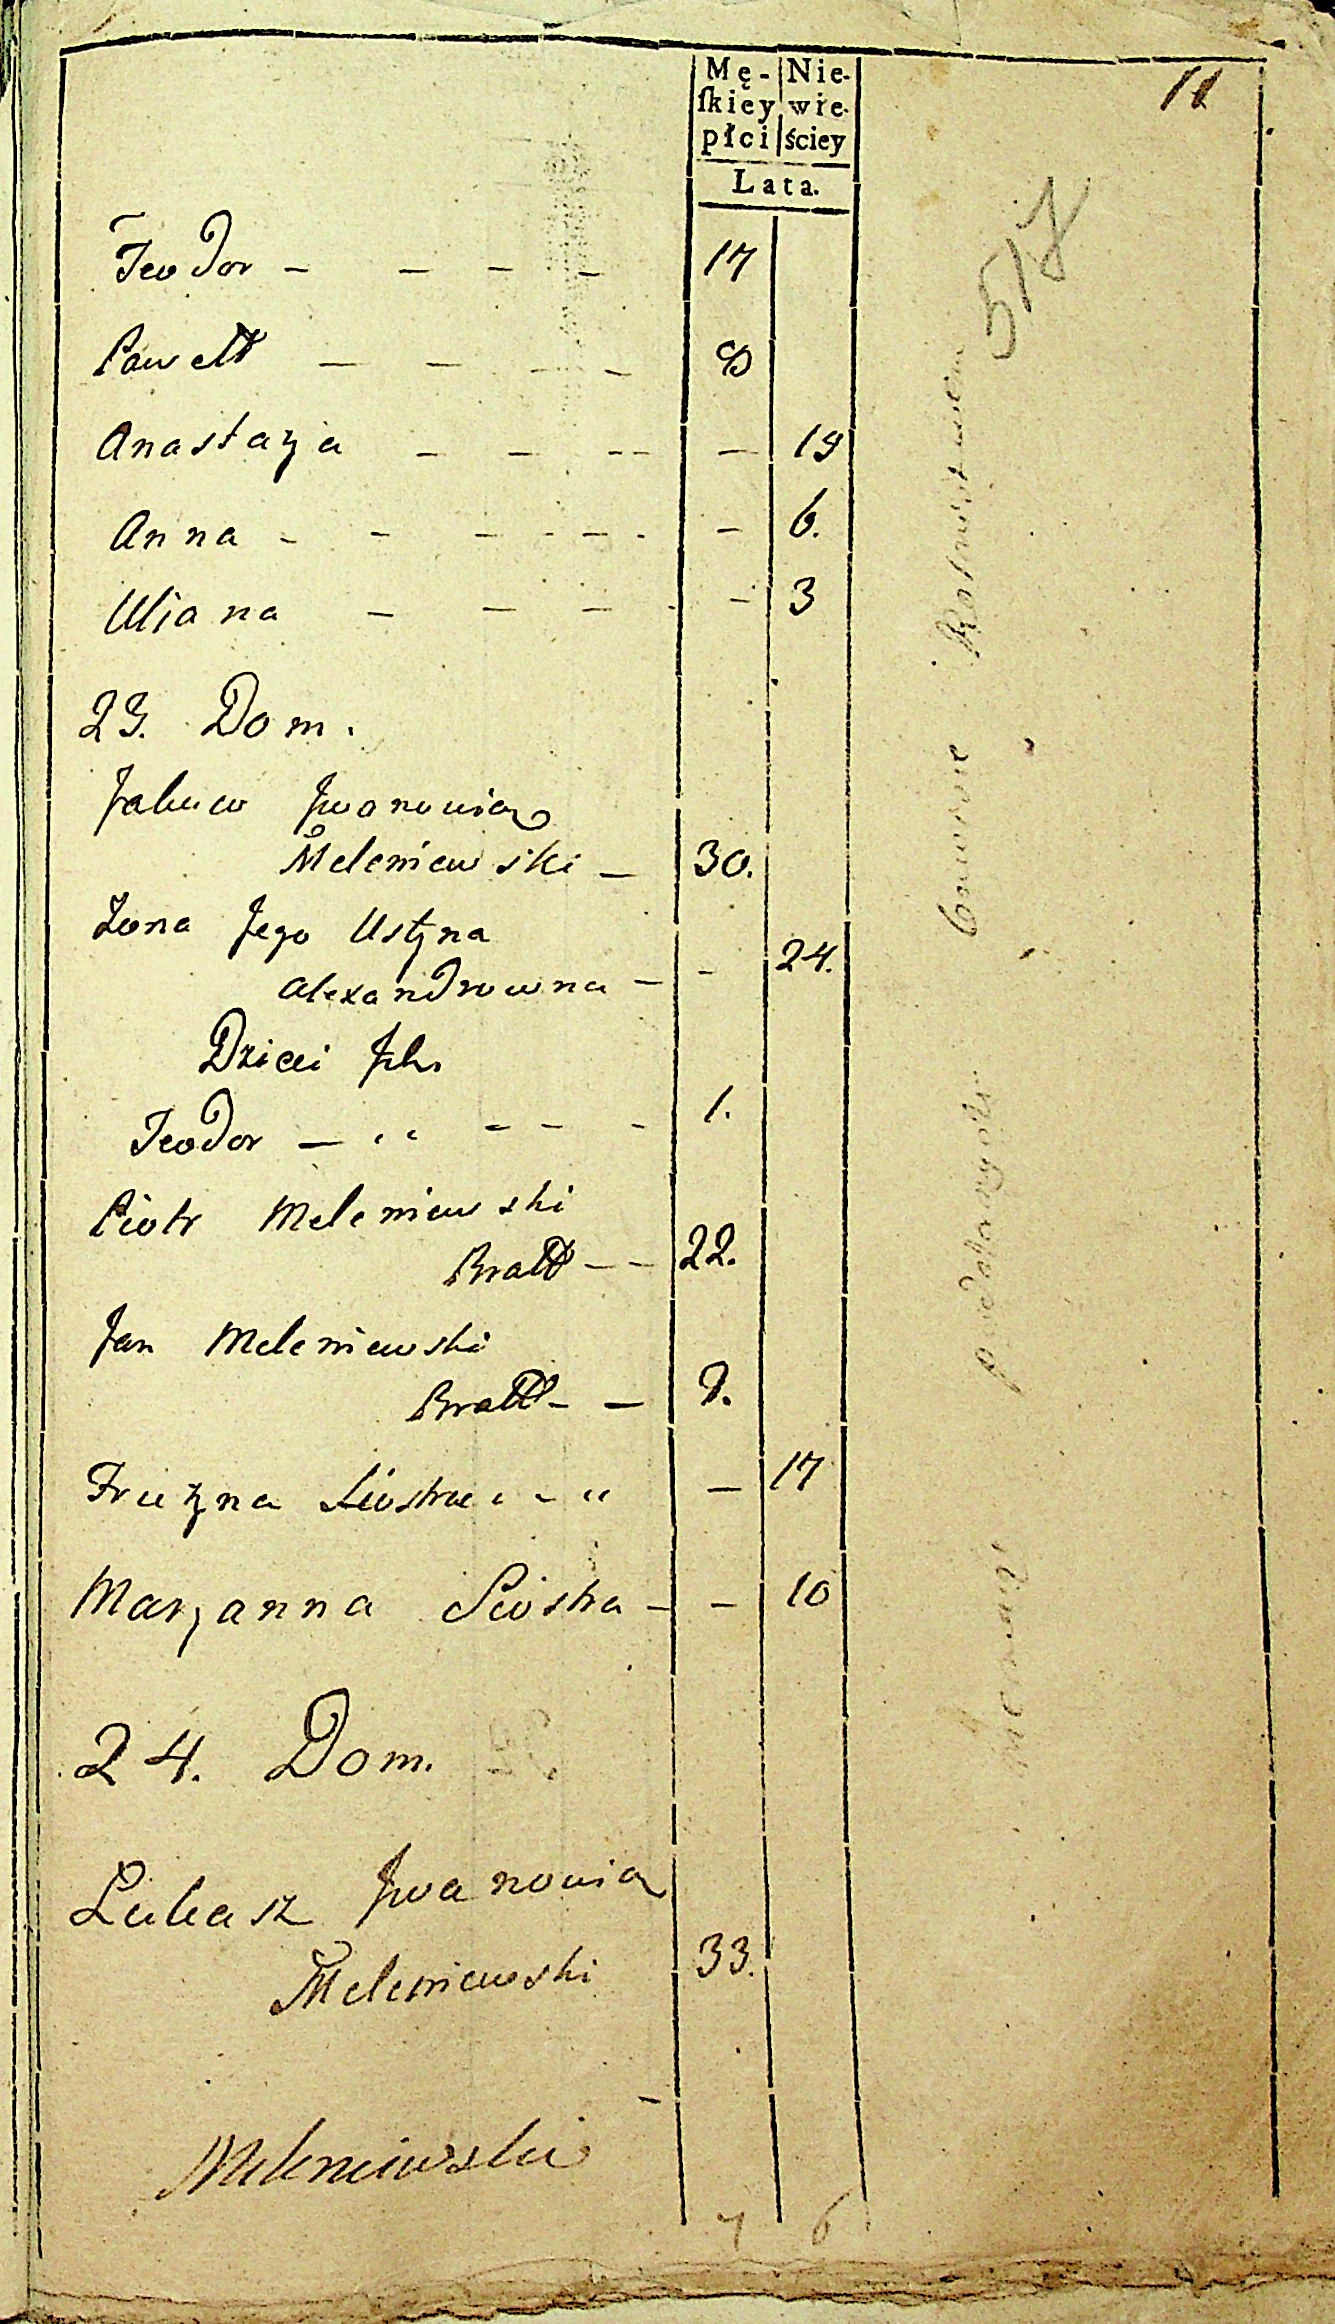 Mę- Nie-
ſkiey wie-
płci ściey
Lata.
11
517
Teodor - - - - 17
Pawełł - - - - 8
Anastazya - - - - - 19
Anna - - - - - - - 6.
Uliana - - - - - 3
23. Dom.
Jakuw Jwanowicz
Meleniewski - 30.
Zona Jego Ustyna
Alexandrowna - - 24.
Dzieci Jch
Teodor - - - - 1.
Piotr Meleniewski
Bratt - - 22.
Jan Meleniewski
Bratt - - 9.
Fruzyna Siostra - - - 17
Maryanna Siostra - - 10
24. Dom.
Lukasz Jwanowicz
Meleniewski 33.
Meleniewski
7 6